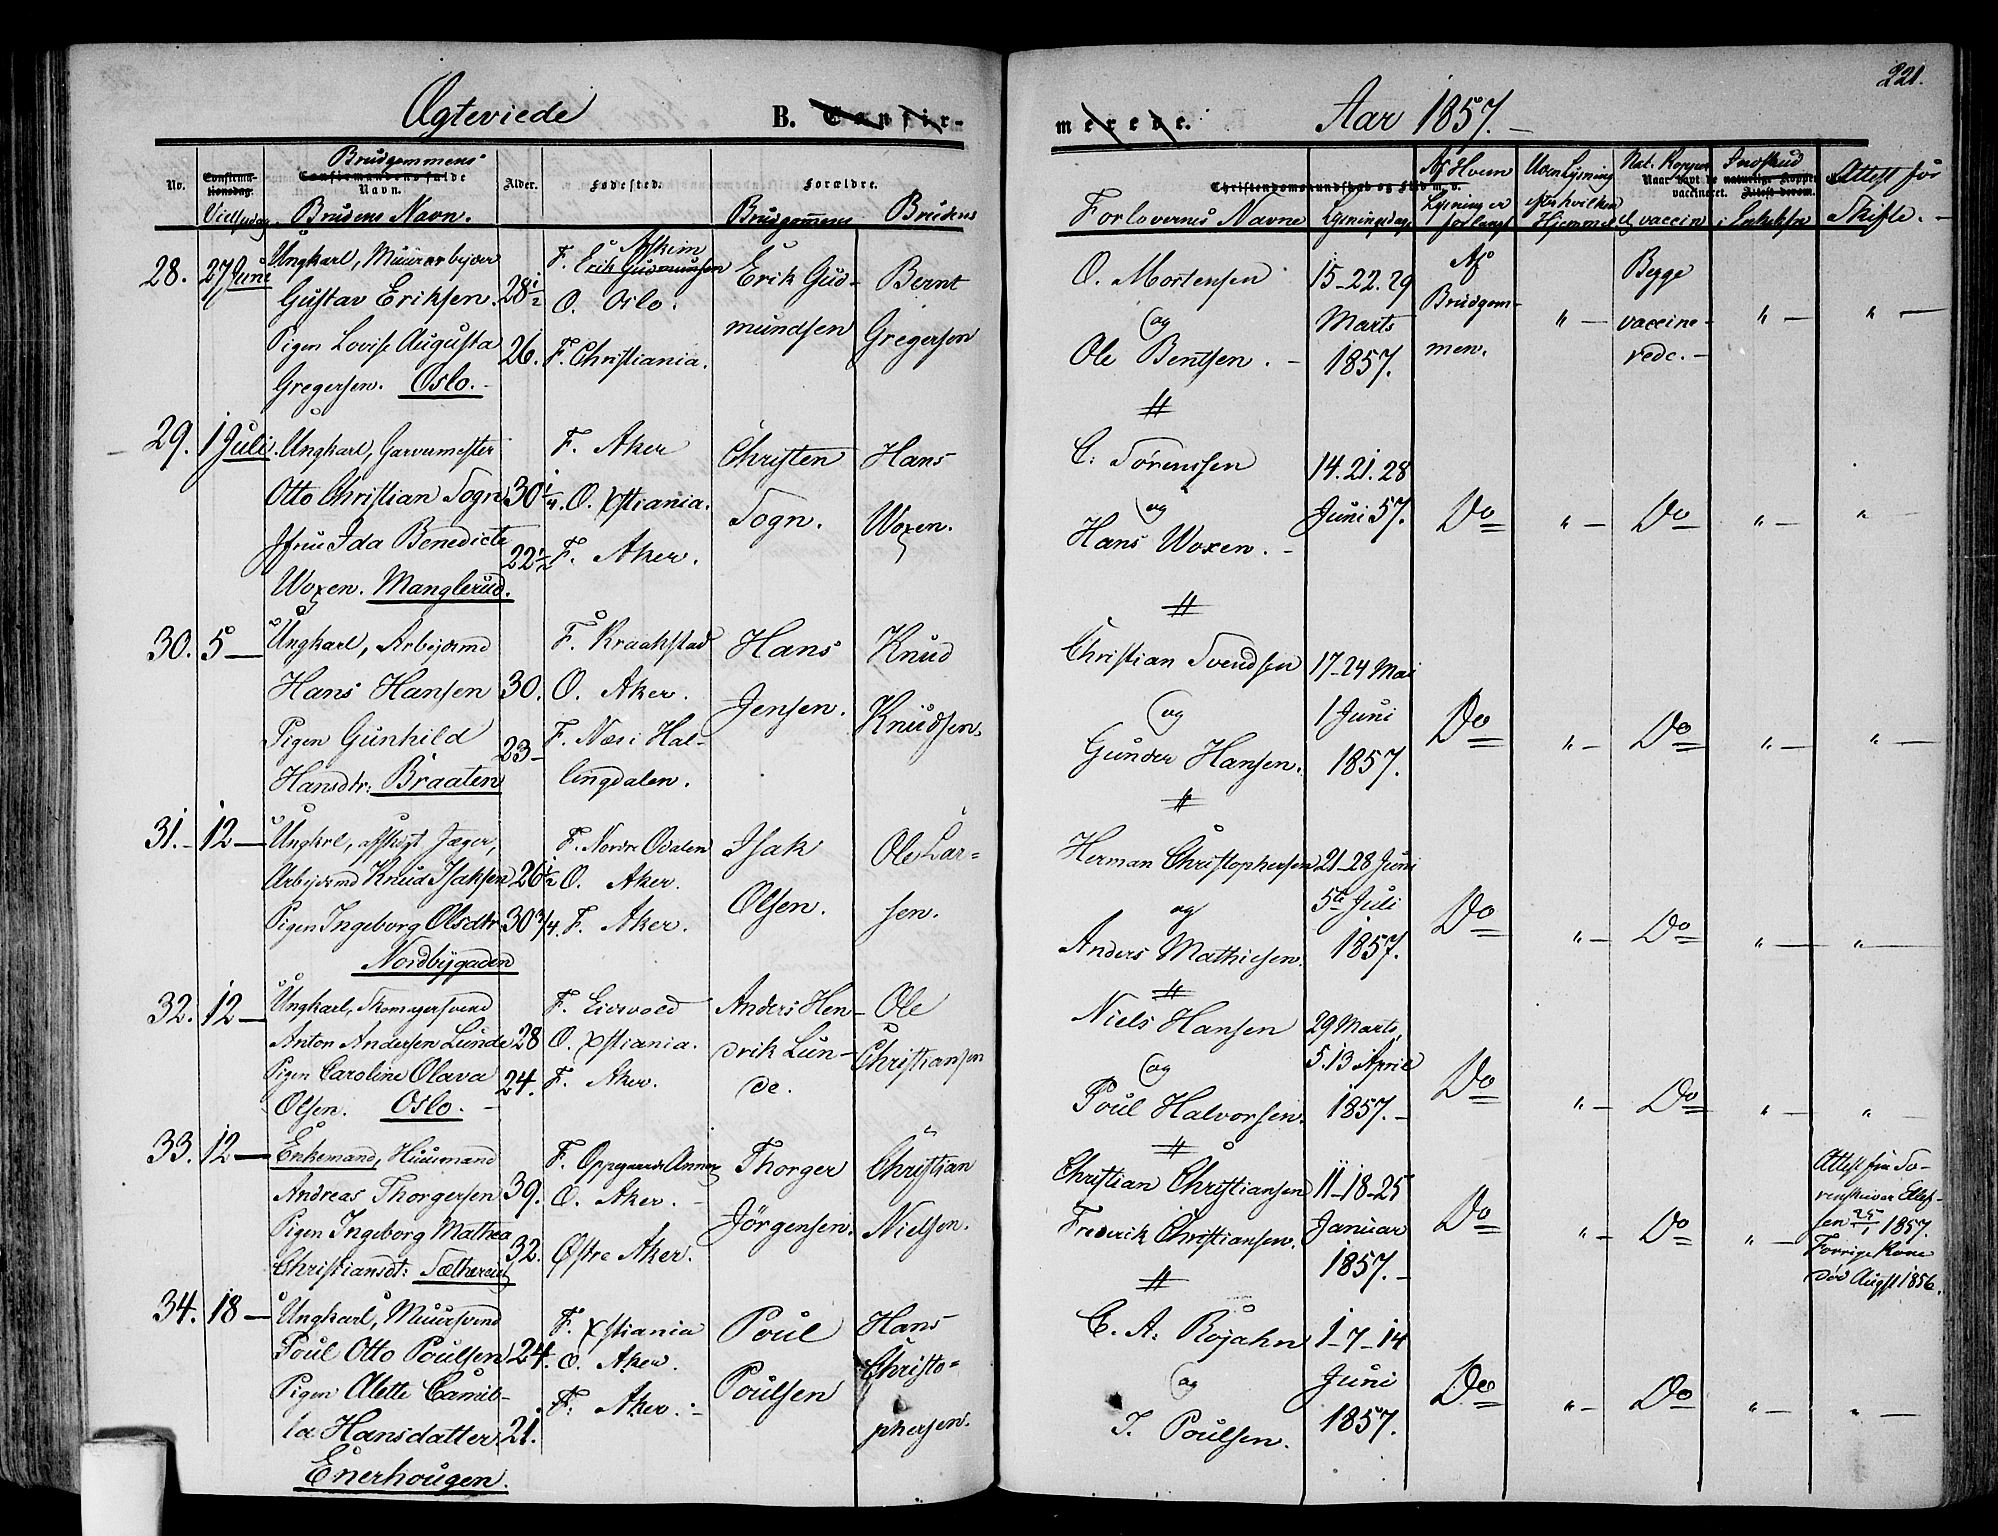 221.
Ægteviede B. Confir-
merede. Aar 1857.
No. Confirma-tionsdag. Vielsesdag
Brudgommens
Confirmandens fulde Navn.
Brudens Navn.
Alder. Fødested. Forældre.
Brudgommens Brudens
Christendomskundskab og Flid m. v.
Forlovernes Navne Lysningsdag
Af Hvem Lysning er forlangt
Uden Lysning efter hvilken Hjemmel
Nat. Kopper
Naar vavt. de naturlige Kopper vaccineret.
el. vaccin
Indskud i Enkekassen
Attest for Skifte.
28. 27 Juni Ungkarl, Muurarbejder
Gustav Eriksen. 28 1/2
Pigen Lovise Augusta 26.
Gregersen. Oslo.
F. Askim
Erik Gudmundsen
O. Oslo.
F. Christiania.
Erik Gud-
mundsen
Bernt
Gregersen
O. Mortensen
og
Ole Bentsen.
15-22. 29
Marts
1857.
Af
Brudgom-
men.
" -
Begge
vaccine-
rede.
" - " -
29. 1 Juli. Ungkarl, Garvermester
Otto Christian Sogn 30 1/4.
Jfru Ida Benedicte 22 1/2
Woxen. Manglerud.
F. Aker
O. Xstiania.
F. Aker.
Christen
Sogn.
Hans
Woxen.
C. Sørenssen
og
Hans Woxen.
14. 21. 28
Juni 57.
Do " - Do " - " -
30. 5 - Ungkarl, Arbejdsmd
Hans Hansen 30.
Pigen Gunhild 23
Hansdtr: Braaten
F. Kraakstad
O. Aker.
F. Næs i Hal-
lingdalen.
Hans
Jensen.
Knud
Knudsen.
Christian Svendsen
og
Gunder Hansen.
17-24 Mai
1 Juni
1857.
Do " - Do " - " -
31. 12 - Ungkrl, afskgt Jæger,
Arbejdsmd Knud Isaksen 26 1/2
Pigen Ingeborg Olsdtr 30 3/4.
Nordbygaden
F. Nordre Odalen
O. Aker.
F. Aker.
Isak
Olsen.
Ole Lar-
sen.
Herman Christophersen
og
Anders Mathiesen.
21-28 Juni
5te Juli
1857.
Do " - Do " - " -
32. 12 - Ungkarl, Skomagersvend
Anton Andersen Lunde 28
Pigen Caroline Olava 24.
Olsen. Oslo.
F. Eidsvold
O. Xstiania.
F. Aker.
Anders Hen-
drik Lun-
de.
Ole
Christiansen
Niels Hansen
og
Poul Halvorsen.
29 Marts,
5. 13 April
1857.
Do " - Do " - " -
33. 12 - Enkemand, Huusmand
Andreas Thorgersen 39.
Pigen Ingeborg Mathea 32.
Christiansdt:
F. Oppegaards Annex
O. Aker.
Østre Aker.
Thorger
Jörgensen.
Christian
Nielsen.
Christian Christiansen
Frederik Christiansen.
11-18-25
Januar
1857.
Do " - Do " -
Attest fra So-
renskriver Ellef-
sen 1857.
Forrige Kone
død Augst 1856.
34. 18 - Ungkarl, Muursvend
Poul Otto Poulsen 24.
Pigen Alette Camil-
la Hansdatter. 21.
Enerhougen.
F. Xstiania
O. Aker.
F. Aker.
Poul
Poulsen
Hans
Christo-
phersen.
C. A. Rojahn
og
J. Poulsen.
1-7-14
Juni
1857.
Do " - Do " - " -